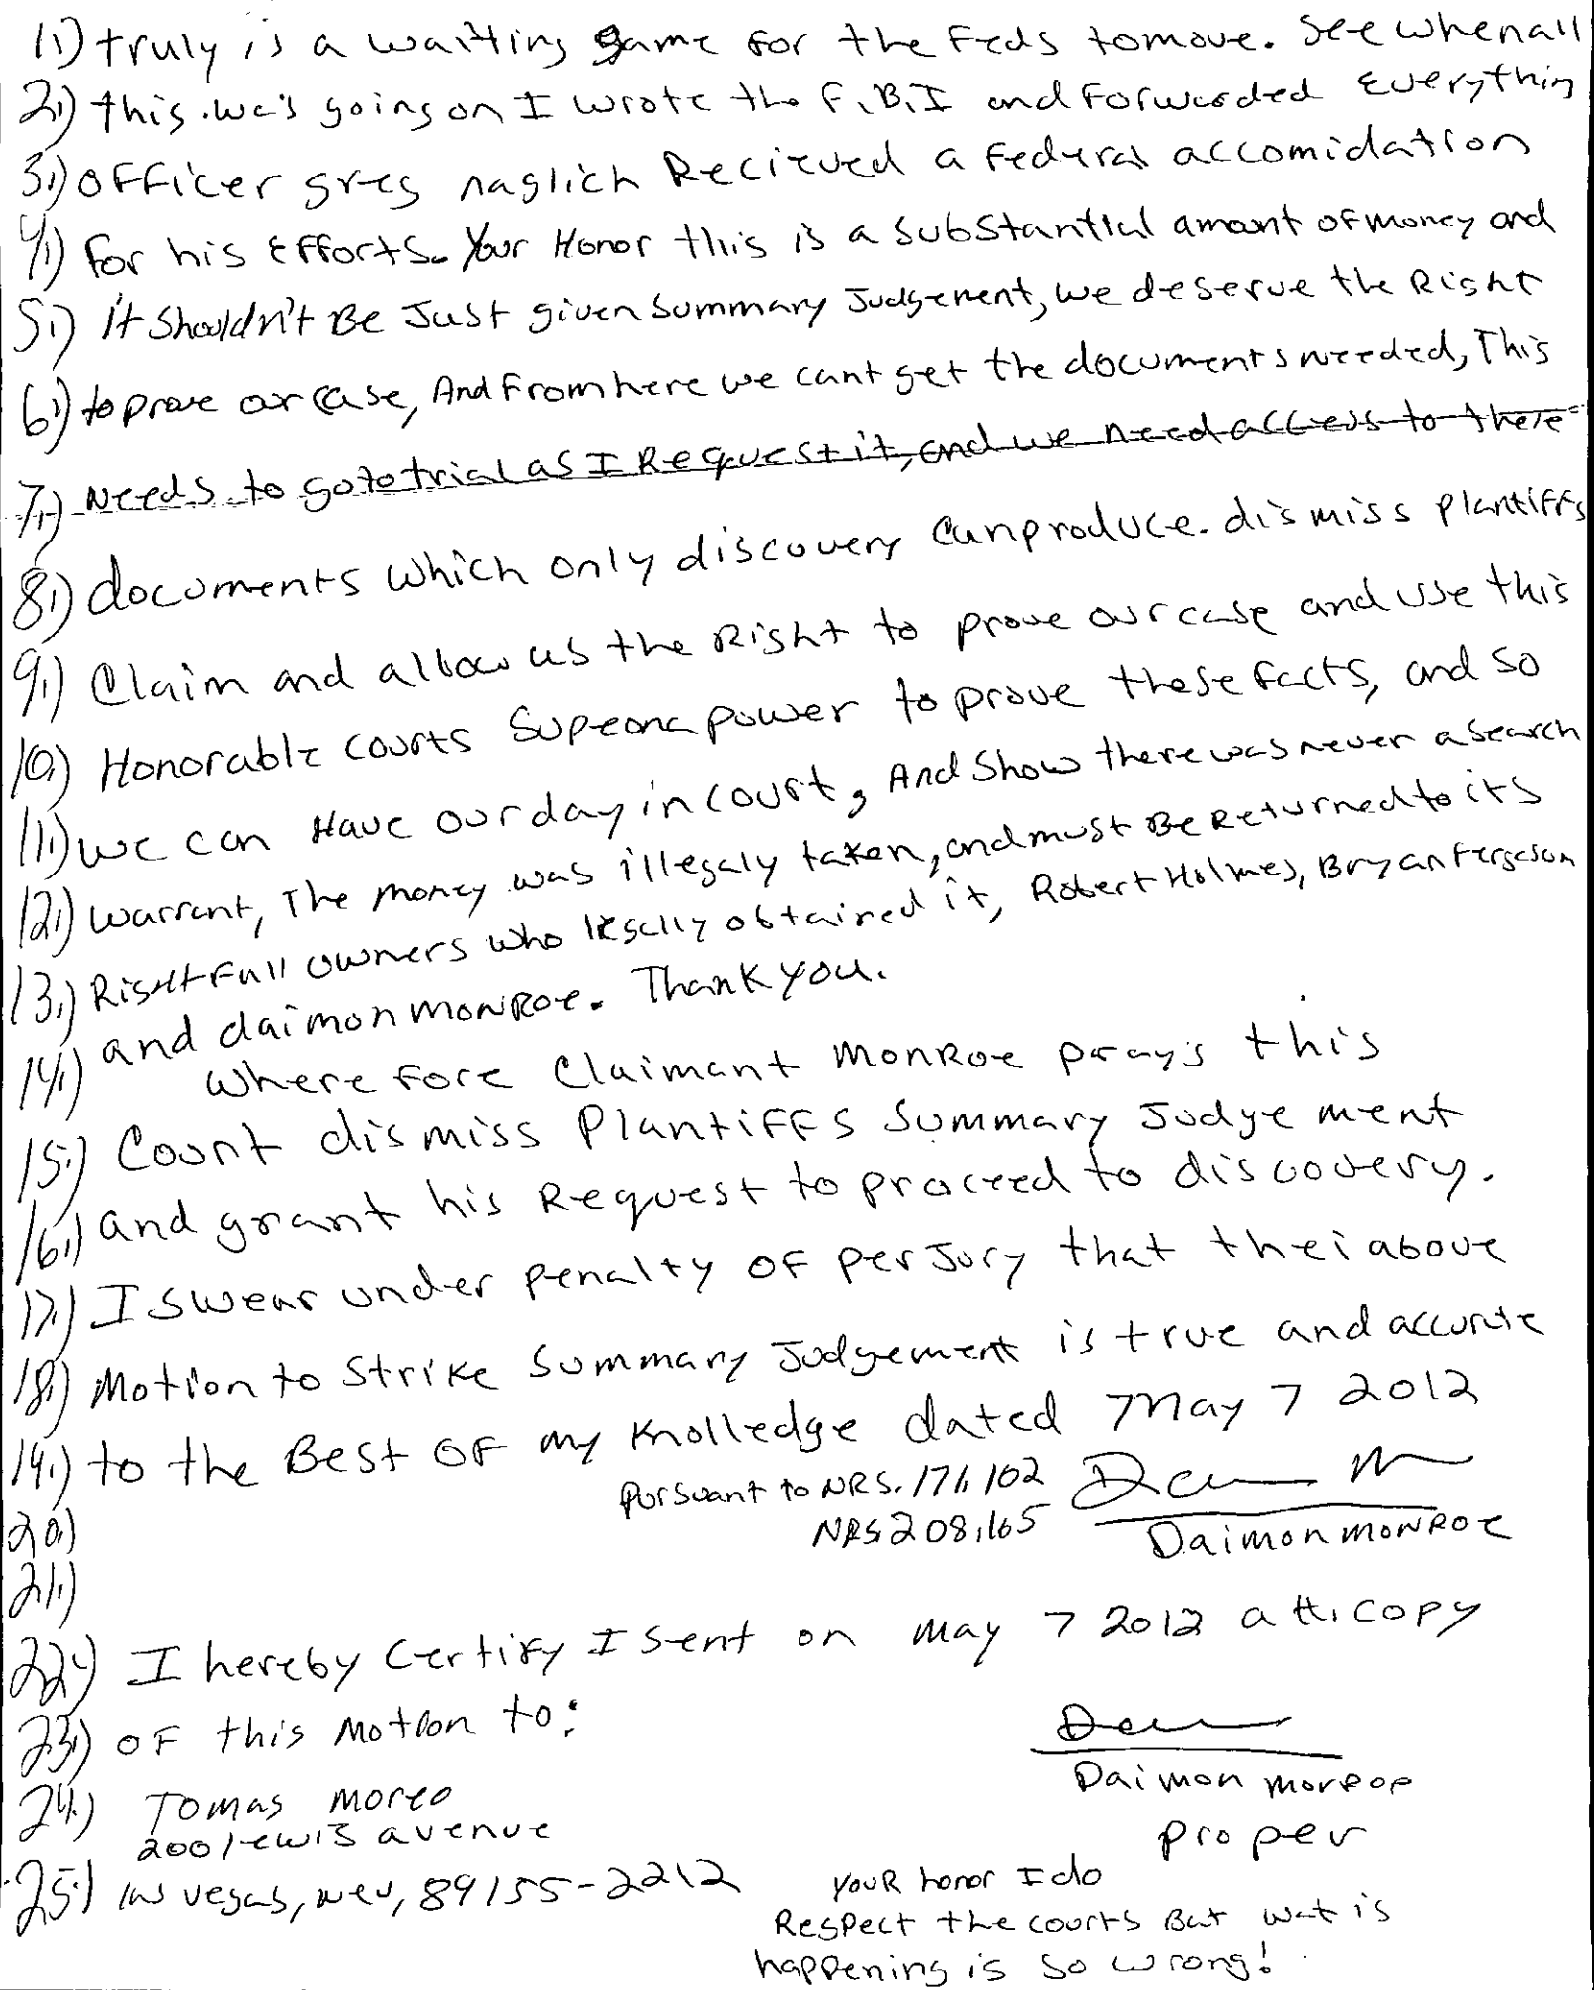 1.) truly is a waiting game for the Feds tomove. See when all
2.) this was going on I wrote the F.B.I and forwarded Everything
3.) officer greg naglich Recieved a Federal accomidation
4.) for his Efforts. Your Honor this is a substantial amount of money and
5.) it Shouldn't Be Just given Summary Judgement, we deserve the Right
6.) to prove our case, And From here we cant get the documents needed, This
7.) Needs to go to trial as I Request it, and we need access to these
8.) documents which only discovery can produce. dismiss plantiffs
9.) Claim and allow us the Right to prove our case and use this
10.) Honorable courts Supeona power to prove these facts, and so
11.) we can Have our day in court, And Show there was never a search
12.) warrant, The money was illegaly taken, and must Be Returned to its
13.) RightFull owners who legally obtained it, Robert Holmes, Bryan Fergeson
14.) and daimon MONROE. Thank you.
Where fore Claimant MONROE prays this
15.) Court dismiss PlantiFFs Summary Judgement
16.) and grant his Request to proceed to discovery.
17.) I swear under penalty of perjury that the above
18.) Motion to Strike Summary Judgement is true and accurate
19.) to the Best OF my Knolledge dated May 7 2012
Pursuant to NRS. 171.102
NRS 208.165
Daimon MONROE
20.)
21.)
22.) I hereby Certify I sent on may 7 2012 a tt. copy
23.) of this Motion to:
Daimon Monroe
24.) Tomas moreo
200 lewis avenue
proper
25.) las vegas, Nev, 89155-2212
YOUR honor I do
Respect the courts But wat is
happening is so wrong!